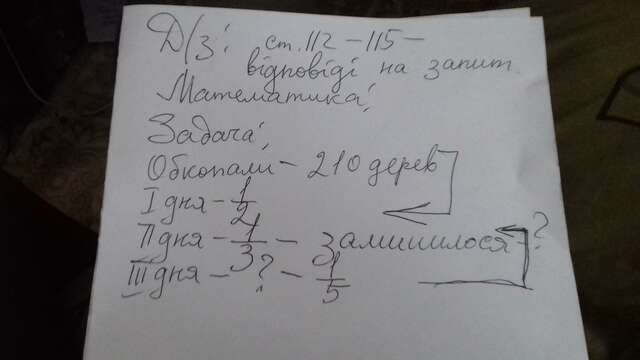 Д/з: ст. 112 – 115 –
відповіді на запит.
Математика:
Задача:
Обкопали – 210 дерев
I дня – 1/2
II дня – 1/3 – залишилося – ?
III дня – ? – 1/5